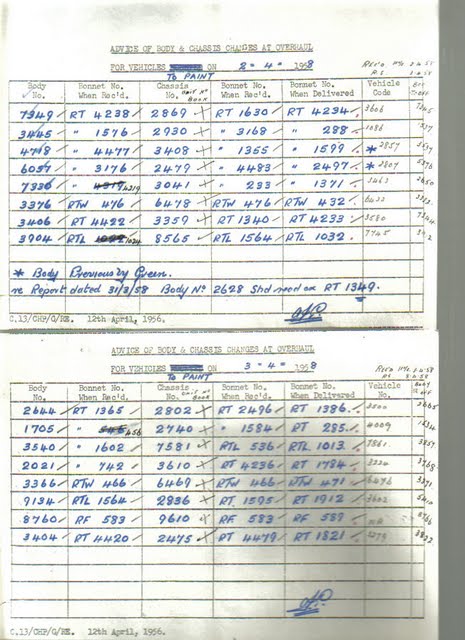 ADVICE OF BODY & CHASSIS CHANGES AT OVERHAUL
FOR VEHICLES ON 2-4-1958
TO PAINT
Body No. Bonnet No. When Rec'd. Chassis No. Bonnet No. When Rec'd. Bonnet No. When Delivered Vehicle Code
7349 RT 4238 2869 RT 1630 RT 4234 3606
3445 " 1576 2930 " 3168 " 288 1086
4718 " 4477 3408 " 1355 " 1599 * 2857
6057 " 3176 2479 " 4483 " 2497 * 2807
7336 4319 3041 " 233 " 1371 3463
3376 RTW 476 6478 RTW 476 RTW 432 6433
3406 RT 4422 3359 RT 1340 RT 4233 3580
3904 RTL 1024 8565 RTL 1564 RTL 1032 7745
* Body Previously Green.
re Report dated 31/3/58 Body No 2628 Shd read ex RT 1349.
C.13/CHP/G/RE. 12th April, 1956.
ADVICE OF BODY & CHASSIS CHANGES AT OVERHAUL
FOR VEHICLES ON 3-4-1958
TO PAINT
Body No. Bonnet No. When Rec'd. Chassis No. Bonnet No. When Rec'd. Bonnet No. When Delivered Vehicle No.
2644 RT 1365 2802 RT 2496 RT 1386 3500
1705 " 456 2740 " 1584 RT 285 4009
3540 " 1602 7581 RTL 536 RTL 1013 7861
2021 " 742 3610 RT 4236 RT 1784 3334
3366 RTW 466 6469 RTW 466 RTW 471 6476
9134 RTL 1564 2836 RT 1595 RT 1912 3602
8760 RF 583 9610 RF 583 RF 589 NA
3404 RT 4420 2475 RT 4479 RT 1821 3279
C.13/CHP/G/RE. 12th April, 1956.